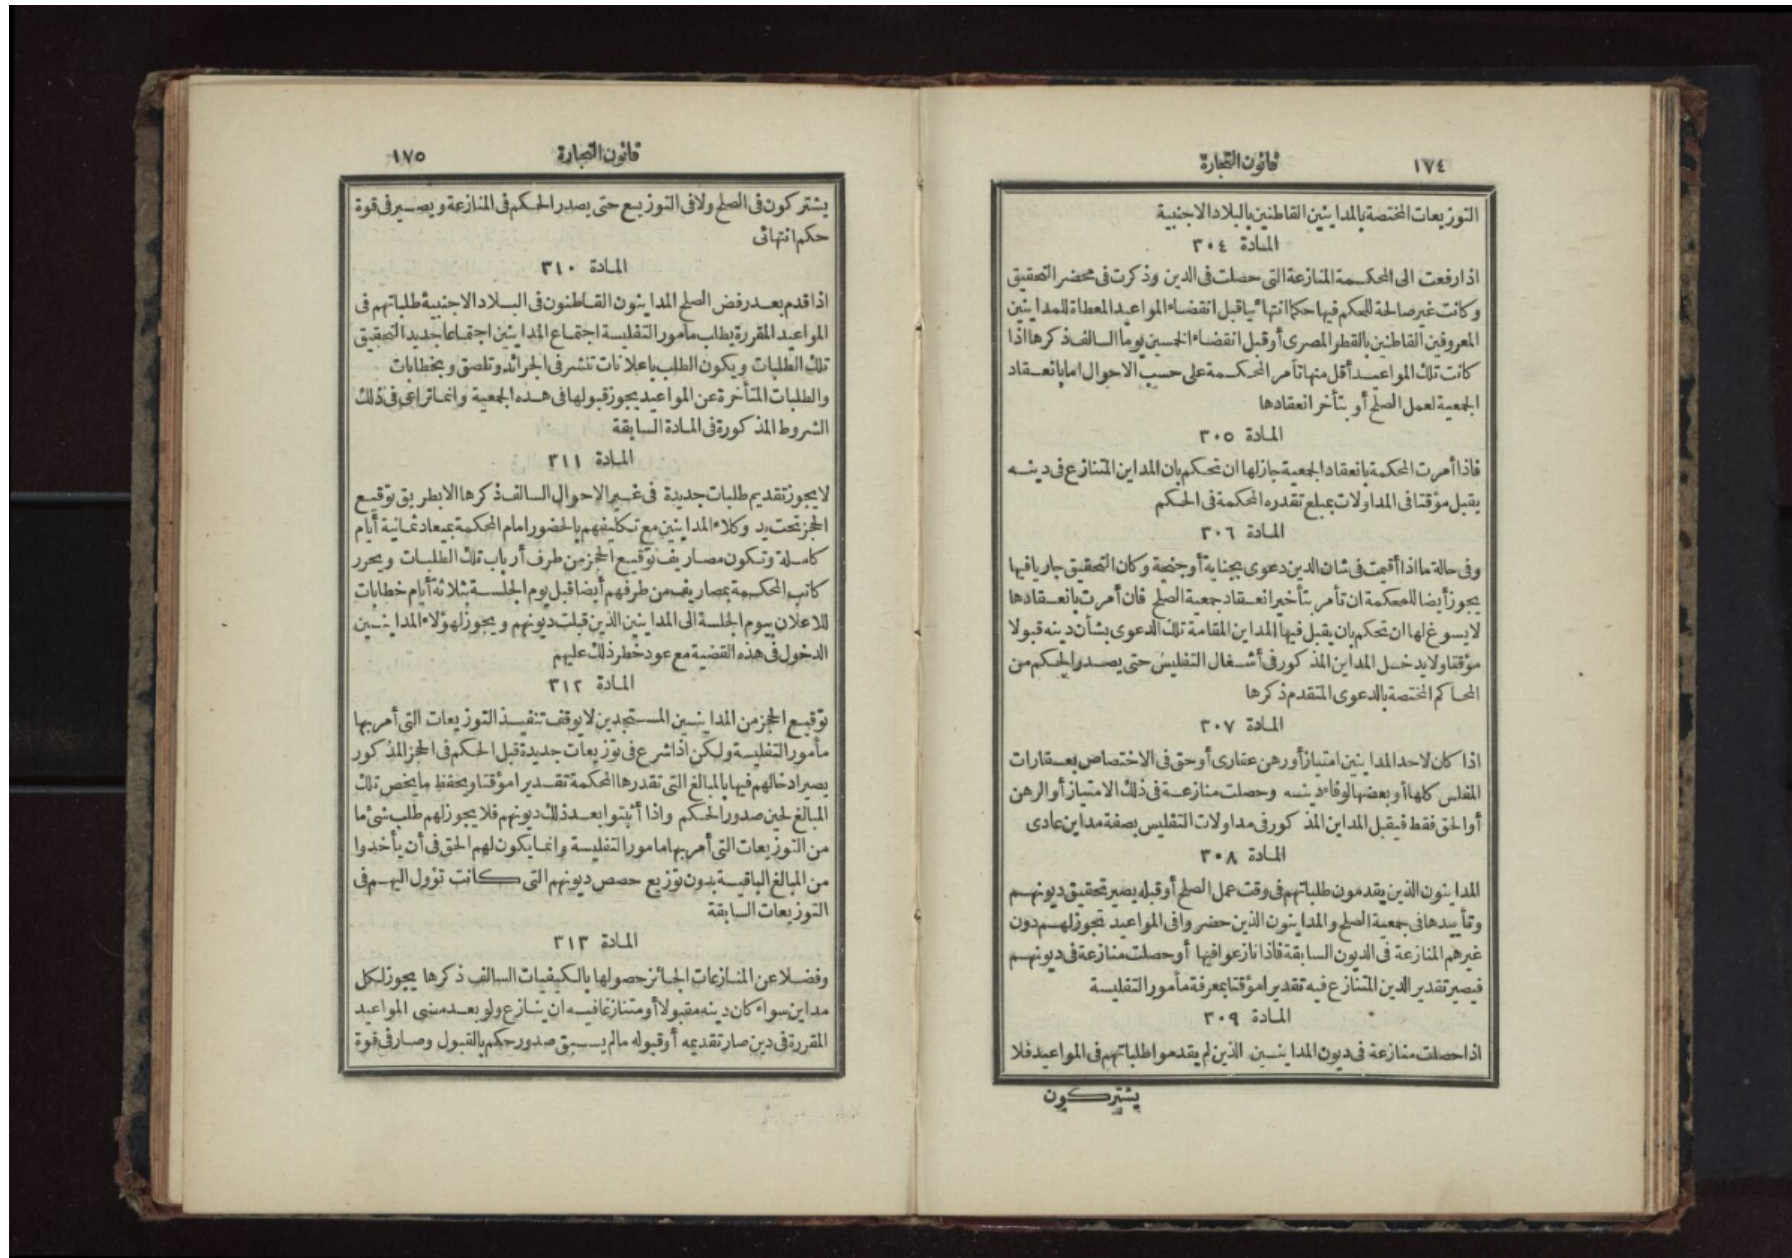 ١٧٤
قانون التجارة
التوزيعات المختصة بالمداينين القاطنين بالبلاد الاجنبية
المادة ٣٠٤
اذا رفعت الى المحكمة المنازعة التى حصلت فى الدين وذكرت فى محضر التحقيق
وكانت غير صالحة للحكم فيها حكما انتهائيا قبل انقضاء المواعيد المعطاة للمداينين
المعروفين القاطنين بالقطر المصرى أو قبل انقضاء الخمسين يوما السالف ذكرها اذا
كانت تلك المواعيد أقل منها تأمر المحكمة على حسب الاحوال اما بانعقاد
الجمعية لعمل الصلح أو بتأخر انعقادها
المادة ٣٠٥
فاذا أمرت المحكمة بانعقاد الجمعية جاز لها ان تحكم بان المداين المتنازع فى دينه
يقبل مؤقتا فى المداولات بمبلغ تقدره المحكمة فى الحكم
المادة ٣٠٦
وفى حالة ما اذا أقيمت فى شان الدين دعوى بجناية أو جنحة وكان التحقيق جاريا فيها
يجوز أيضا للمحكمة ان تأمر بتأخير انعقاد جمعية الصلح فان أمرت بانعقادها
لا يسوغ لها ان تحكم بان يقبل فيها المداين المقامة تلك الدعوى بشأن دينه قبولا
مؤقتا ولا يدخل المداين المذكور فى أشغال التفليس حتى يصدر الحكم من
المحاكم المختصة بالدعوى المتقدم ذكرها
المادة ٣٠٧
اذا كان لاحد المداينين امتياز أو رهن عقارى أو حق فى الاختصاص بعقارات
المفلس كلها أو بعضها لوفاء دينه وحصلت منازعة فى ذلك الامتياز أو الرهن
أو الحق فقط فيقبل المداين المذكور فى مداولات التفليس بصفة مداين عادى
المادة ٣٠٨
المداينون الذين يقدمون طلباتهم فى وقت عمل الصلح أو قبله يصير تحقيق ديونهم
وتأييدها فى جمعية الصلح والمداينون الذين حضروا فى المواعيد تجوز لهم دون
غيرهم المنازعة فى الديون السابقة فاذا نازعوا فيها أو حصلت منازعة فى ديونهم
فيصير تقدير الدين المتنازع فيه تقديرا مؤقتا بمعرفة مأمور التفليسة
المادة ٣٠٩
اذا حصلت منازعة فى ديون المداينين الذين لم يقدموا طلباتهم فى المواعيد فلا
يشتركون
قانون التجارة
١٧٥
يشتركون فى الصلح ولا فى التوزيع حتى يصدر الحكم فى المنازعة ويصير فى قوة
حكم انتهائى
المادة ٣١٠
اذا قدم بعد رفض الصلح المداينون القاطنون فى البلاد الاجنبية طلباتهم فى
المواعيد المقررة يطلب مأمور التفليسة اجتماع المداينين اجتماعا جديدا لتحقيق
تلك الطلبات ويكون الطلب باعلانات تنشر فى الجرائد وتلصق وبخطابات
والطلبات المتأخرة عن المواعيد يجوز قبولها فى هذه الجمعية وانما تراعى فى ذلك
الشروط المذكورة فى المادة السابقة
المادة ٣١١
لا يجوز تقديم طلبات جديدة فى غير الاحوال السالف ذكرها الا بطريق توقيع
الحجز تحت يد وكلاء المداينين مع تكليفهم بالحضور امام المحكمة بميعاد ثمانية أيام
كاملة وتكون مصاريف توقيع الحجز من طرف أرباب تلك الطلبات ويحرر
كاتب المحكمة بمصاريف من طرفهم أيضا قبل يوم الجلسة بثلاثة أيام خطابات
للاعلان بيوم الجلسة الى المداينين الذين قبلت ديونهم ويجوز لهؤلاء المداينين
الدخول فى هذه القضية مع عود خطر ذلك عليهم
المادة ٣١٢
توقيع الحجز من المداينين المستجدين لا يوقف تنفيذ التوزيعات التى أمر بها
مأمور التفليسة ولكن اذا شرع فى توزيعات جديدة قبل الحكم فى الحجز المذكور
يصير ادخالهم فيها بالمبالغ التى تقدرها المحكمة تقديرا مؤقتا ويحفظ ما يخص تلك
المبالغ لحين صدور الحكم واذا أثبتوا بعد ذلك ديونهم فلا يجوز لهم طلب شئ ما
من التوزيعات التى أمر بها مامور التفليسة وانما يكون لهم الحق فى أن يأخذوا
من المبالغ الباقية بدون توزيع حصص ديونهم التى كانت تؤول اليهم فى
التوزيعات السابقة
المادة ٣١٣
وفضلا عن المنازعات الجائز حصولها بالكيفيات السالف ذكرها يجوز لكل
مداين سواء كان دينه مقبولا أو متنازعا فيه ان ينازع ولو بعد مضى المواعيد
المقررة فى دين صار تقديمه أو قبوله مالم يسبق صدور حكم بالقبول وصار فى قوة